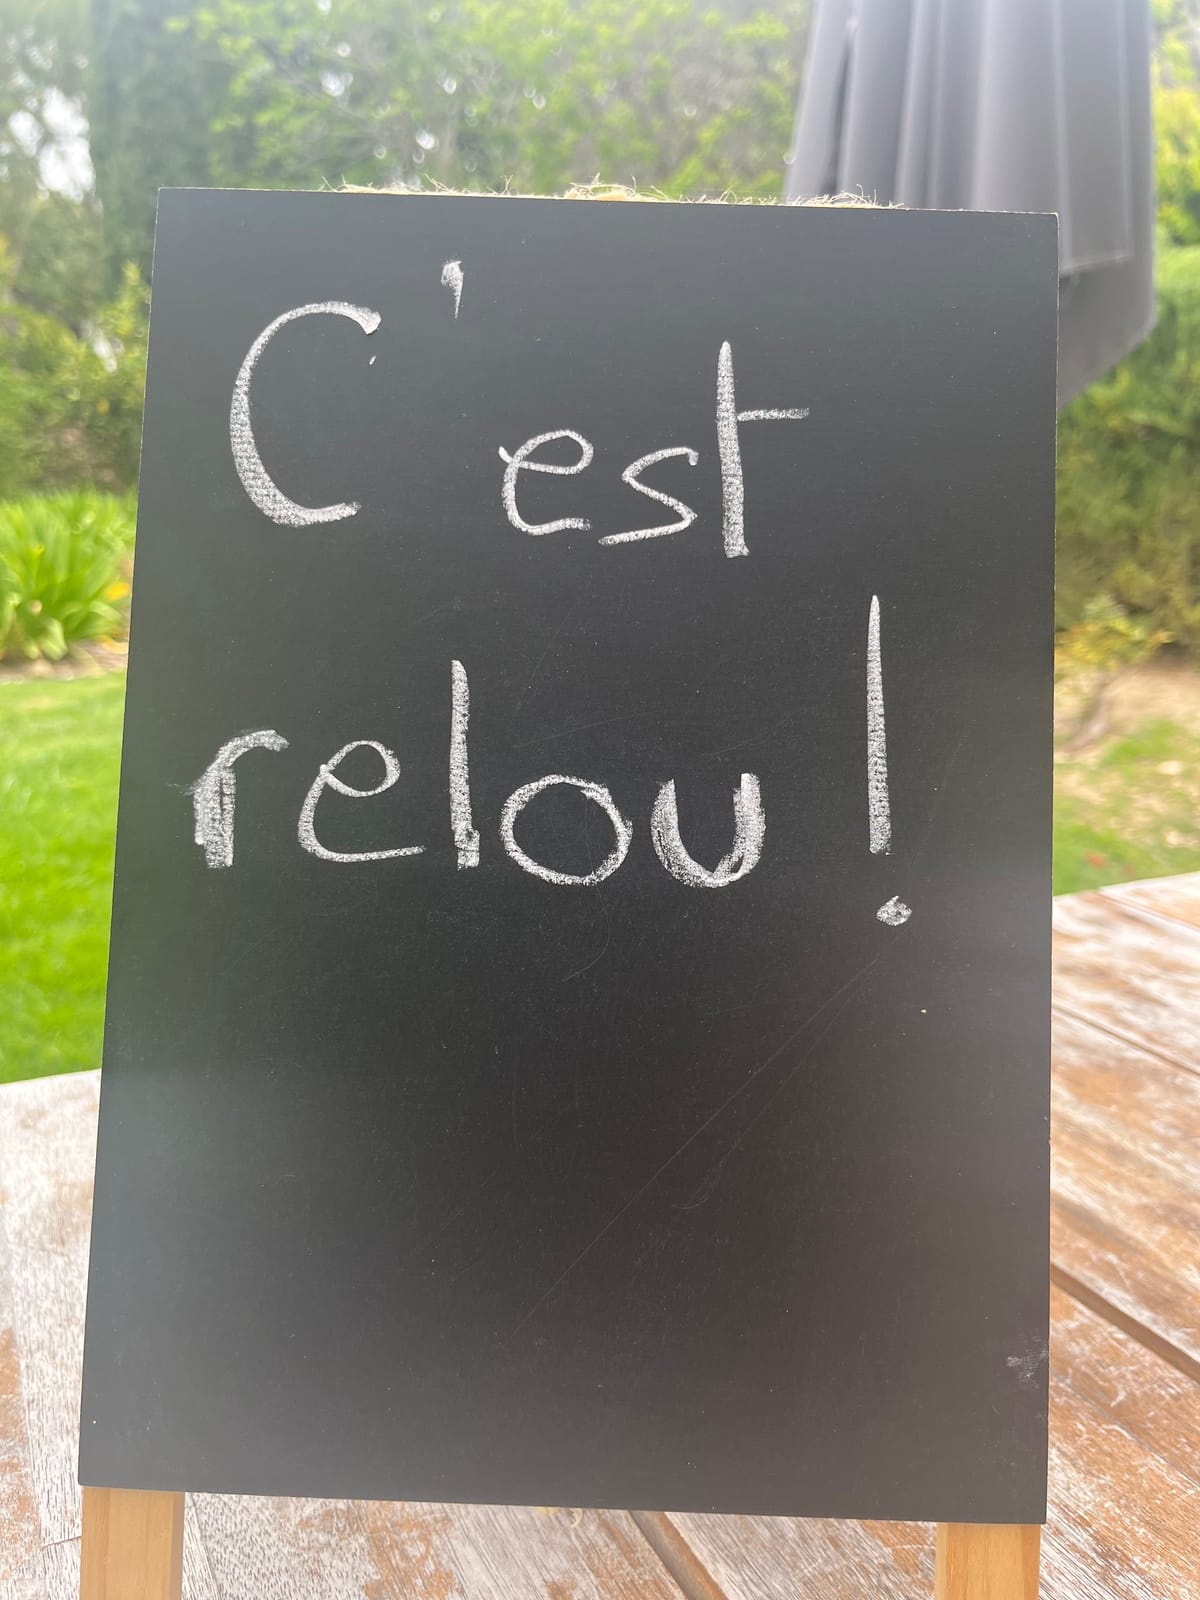 C'est
relou !